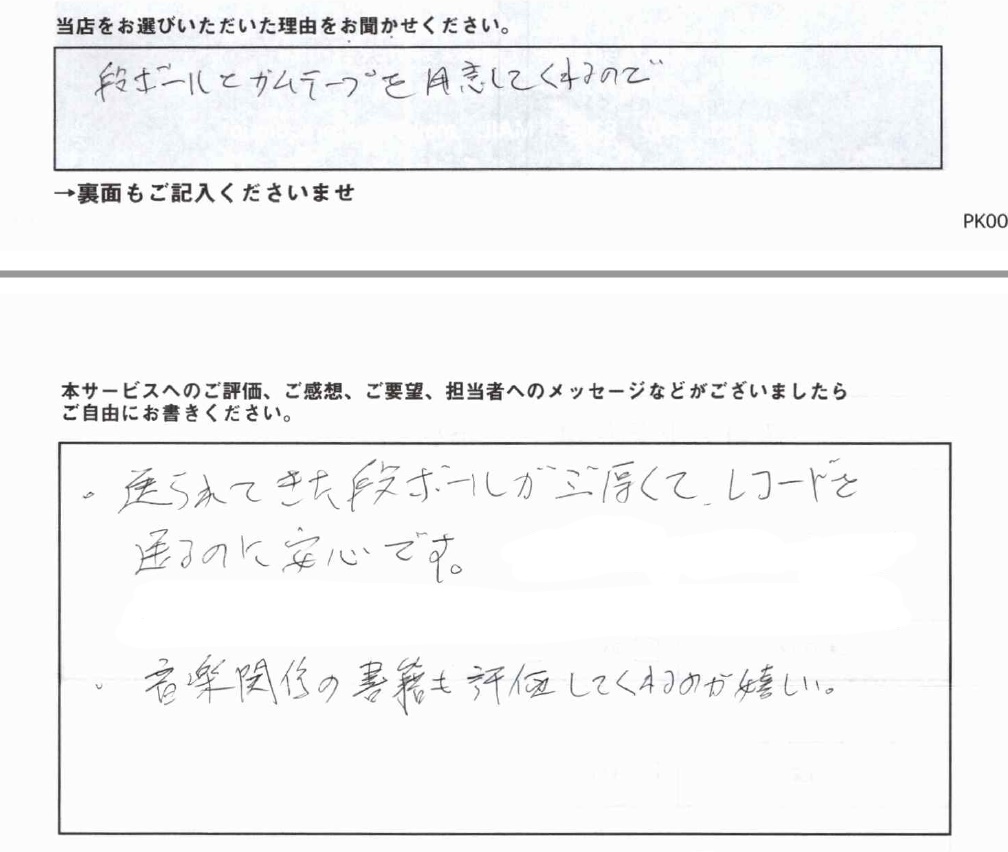 当店をお選びいただいた理由をお聞かせください。
段ボールとガムテープを用意してくれるので
→裏面もご記入くださいませ
PK00
本サービスへのご評価、ご感想、ご要望、担当者へのメッセージなどがございましたら
ご自由にお書きください。
・送られてきた段ボールがぶ厚くて、レコードを
送るのに安心です。
・音楽関係の書籍も評価してくれるのが嬉しい。